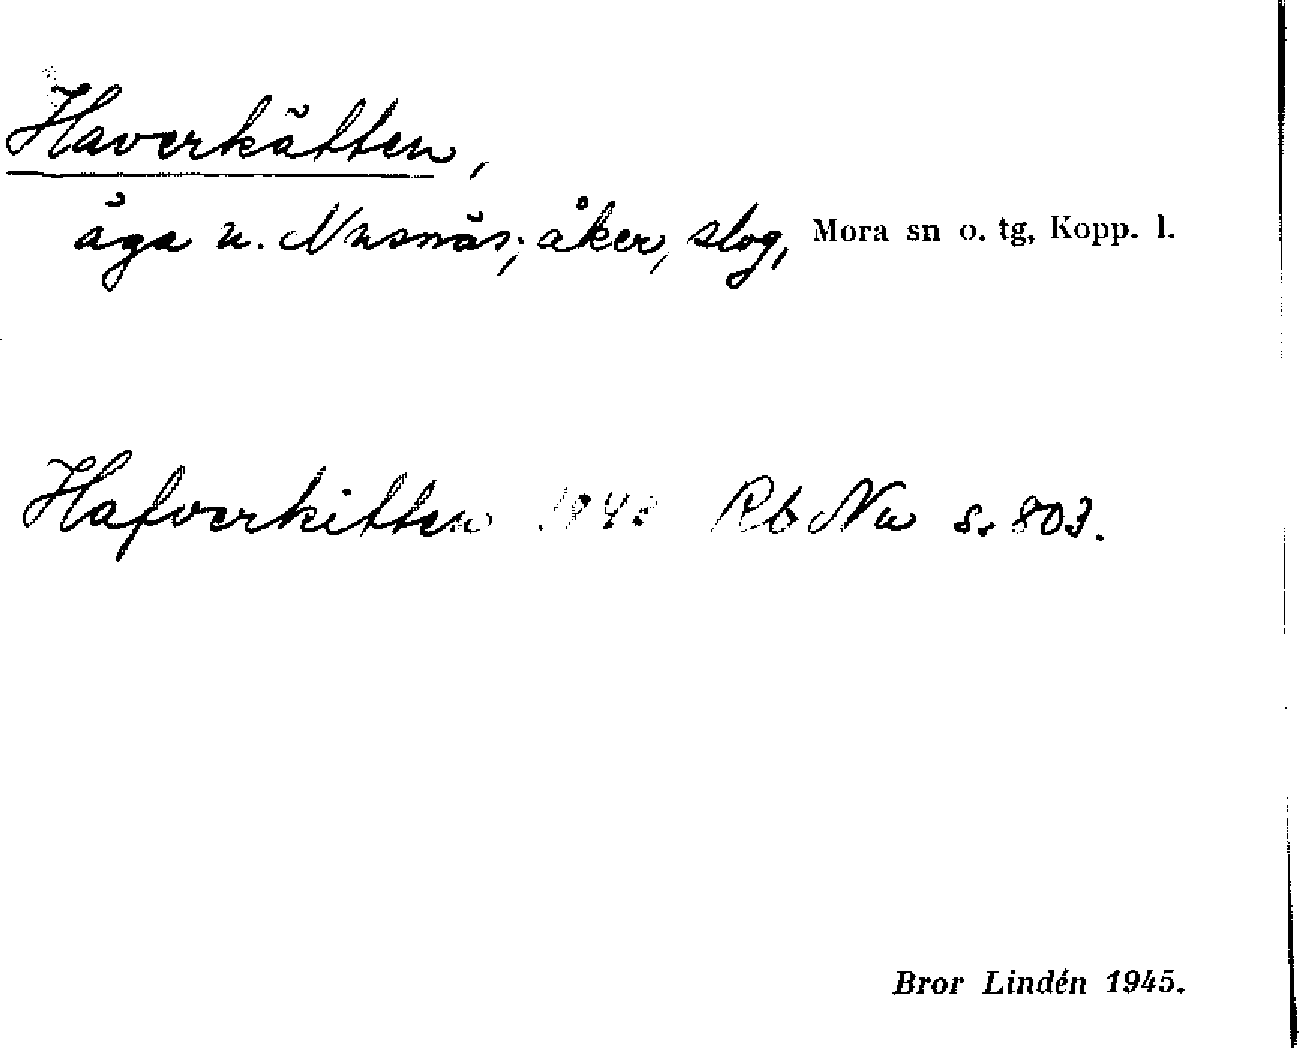 Haverkätten,
äga u. Nusnäs; åker, slog, Mora sn o. tg, Kopp. l.
Hafverkitten Rb Nu s. 803.
Bror Lindén 1945.